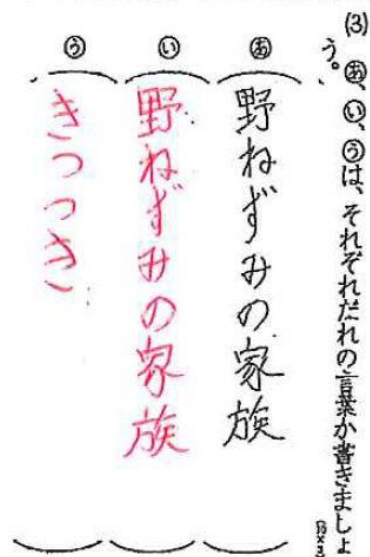 (3) あ、い、うは、それぞれだれの言葉か書きましょ
う。
あ（野ねずみの家族）
い（野ねずみの家族）
う（きつつき）